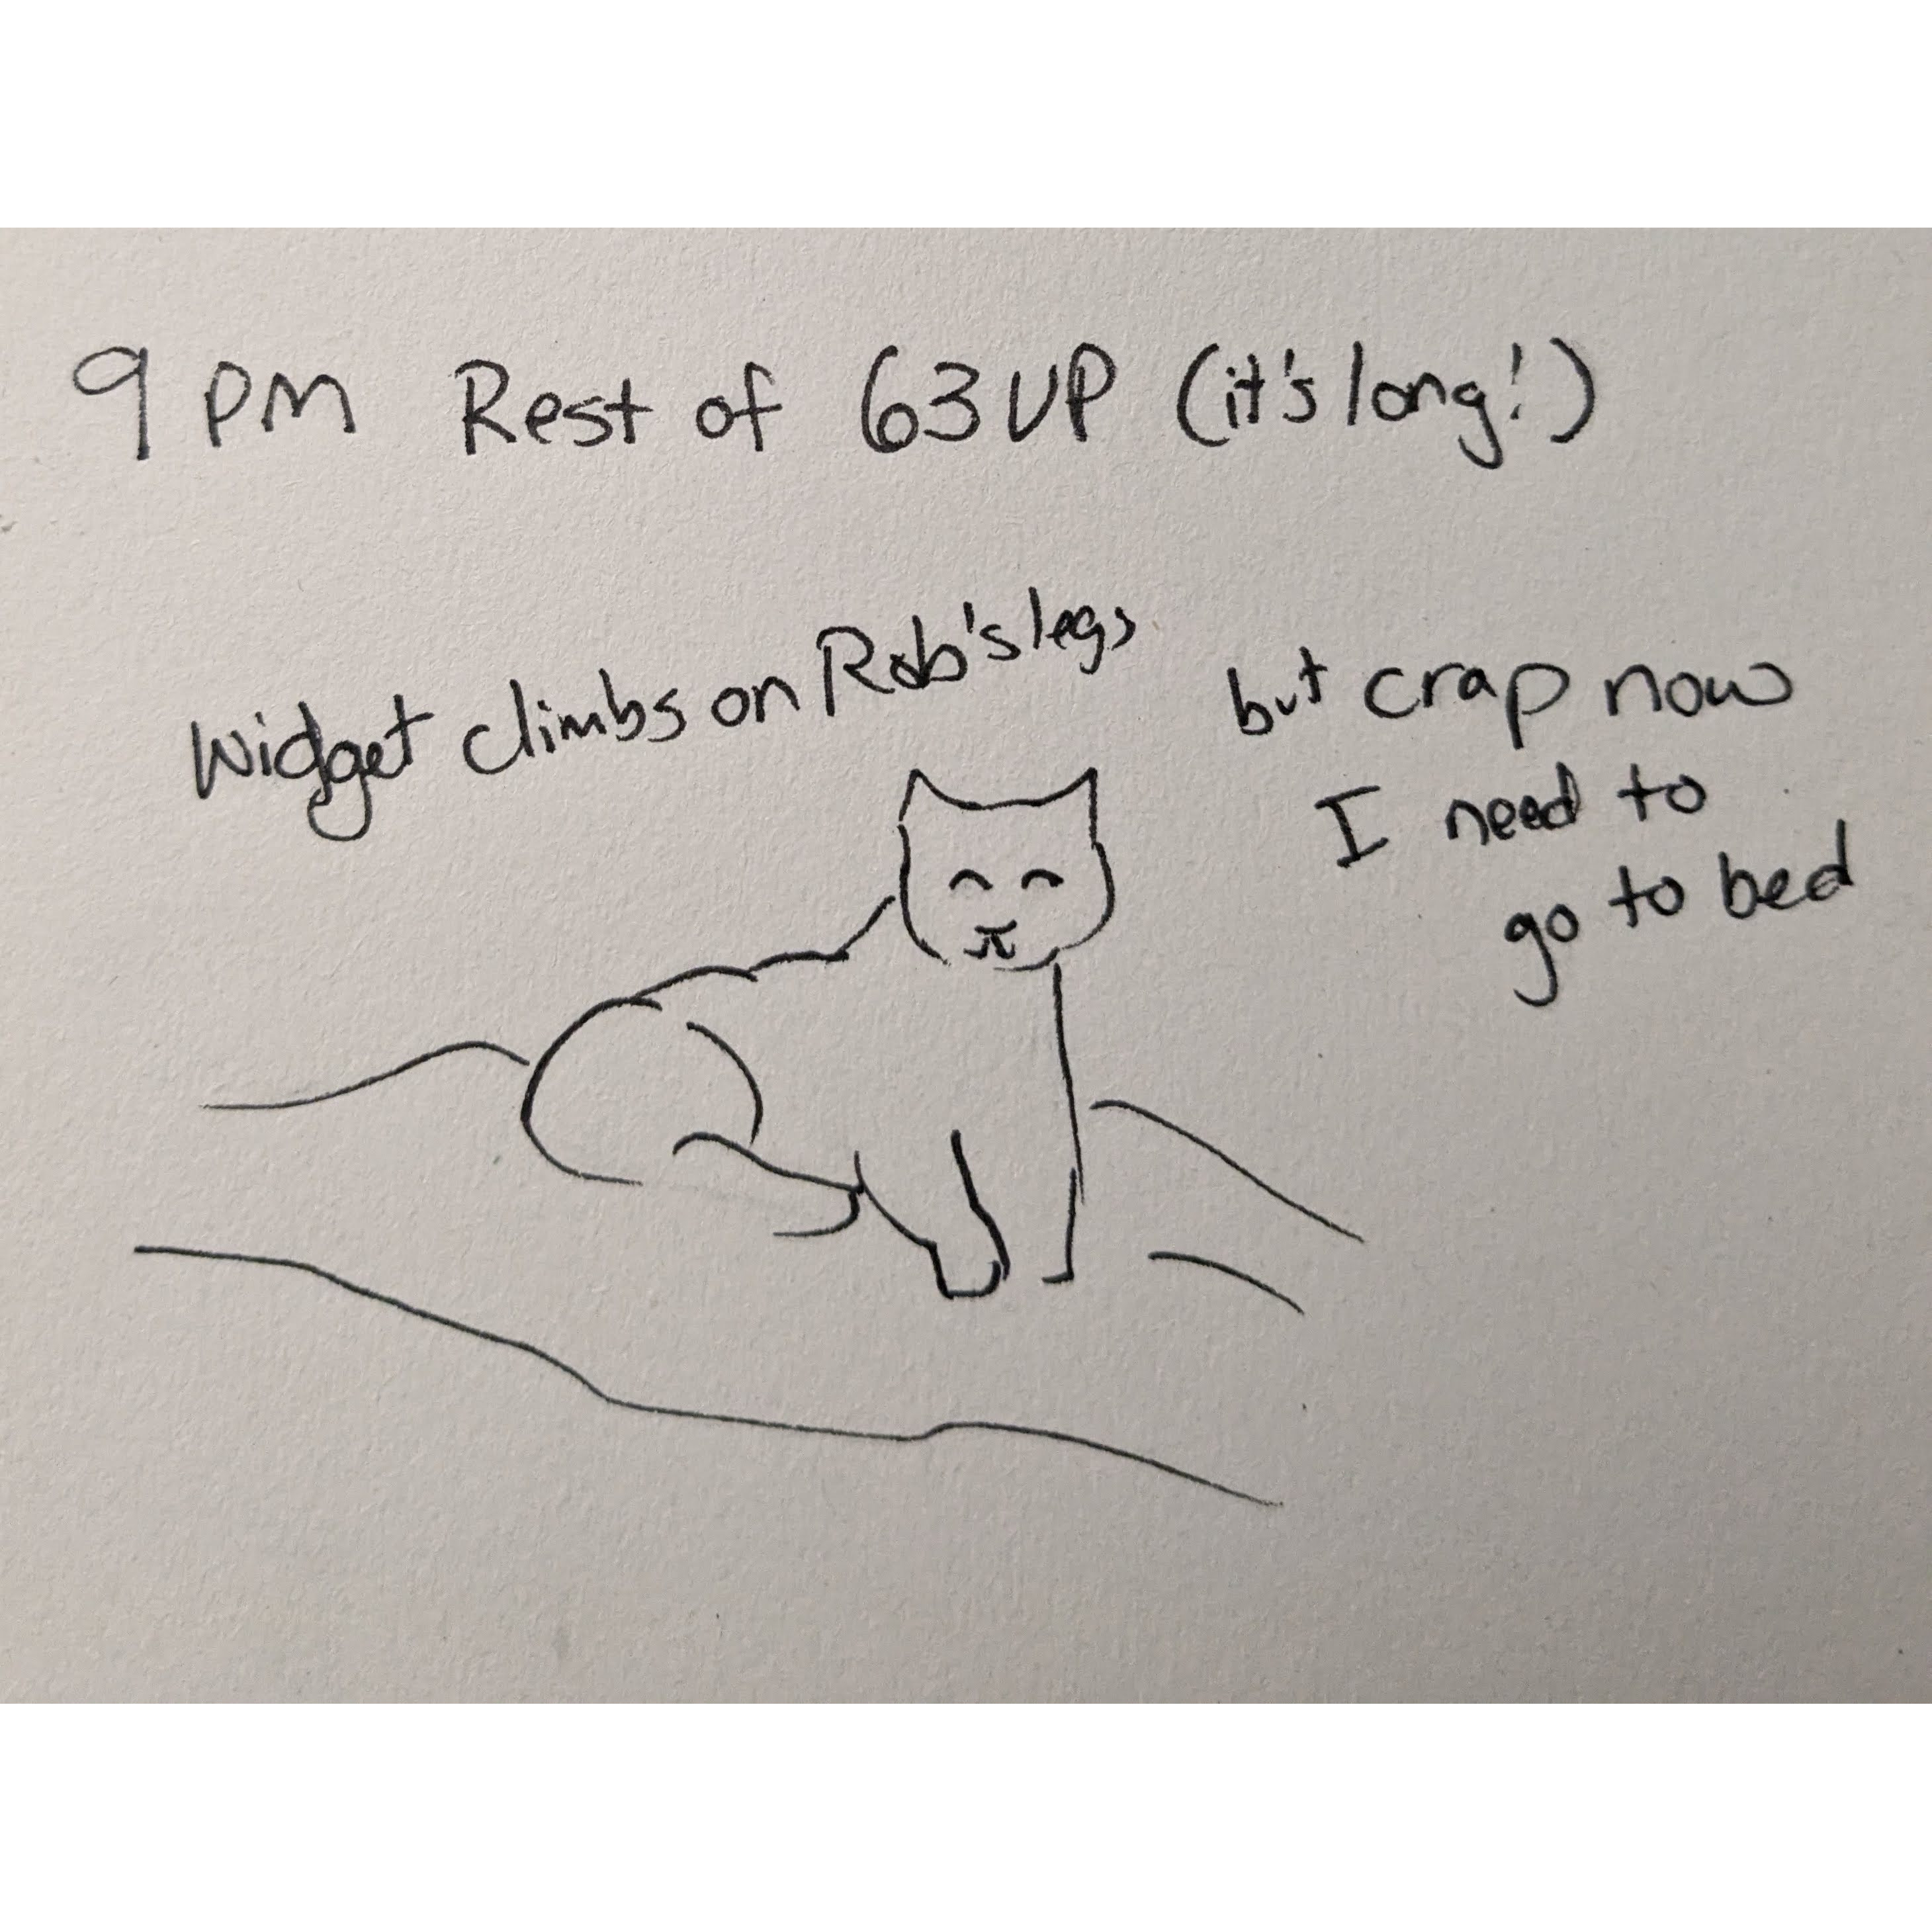 9 PM Rest of 63 UP (it's long!)
Widget climbs on Rob's legs
but crap now
I need to
go to bed